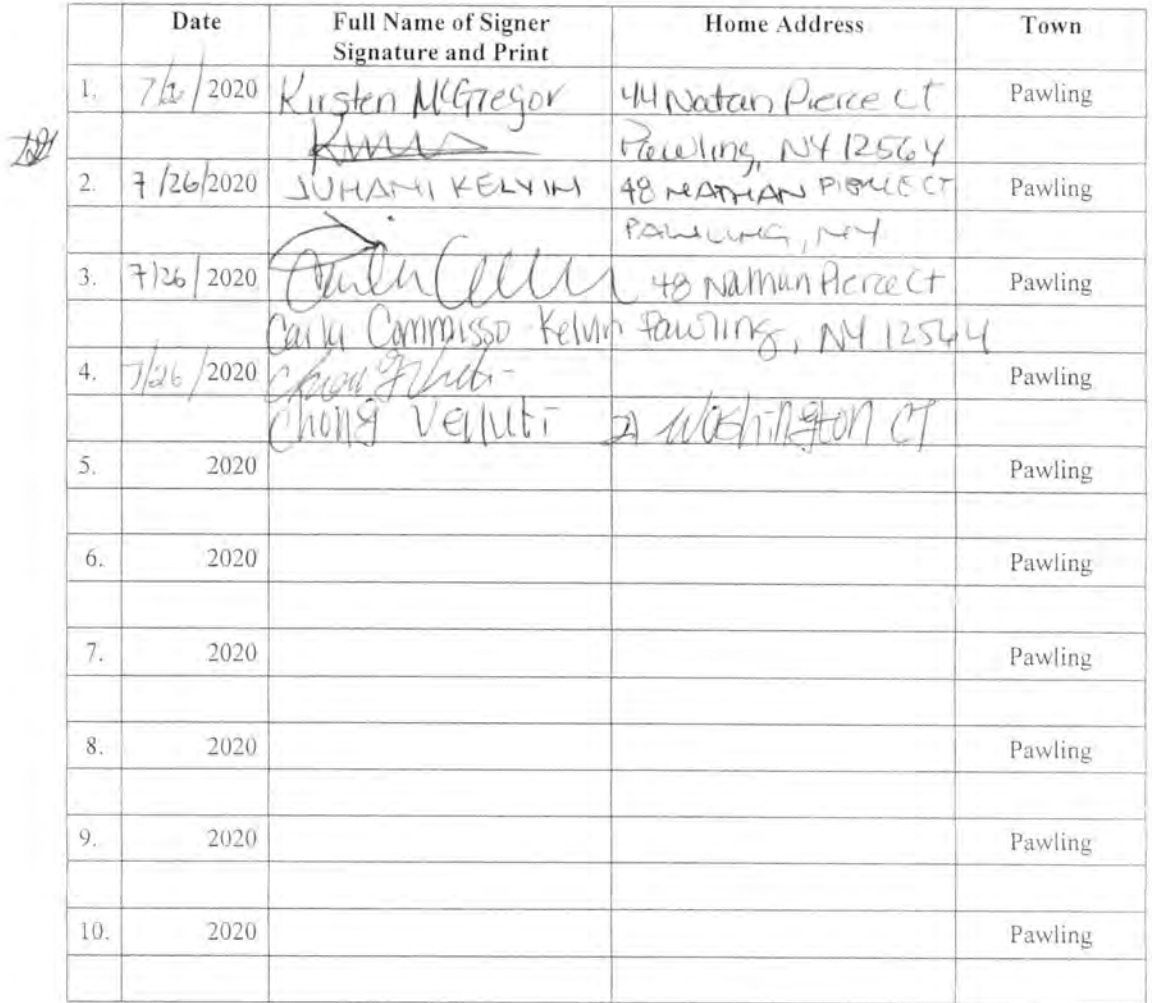 Date Full Name of Signer Home Address Town
Signature and Print
1. 7/ /2020 Kirsten McGregor 44 Natan Pierce Ct Pawling
Pawling, NY 12564
2. 7/26/2020 JUHANI KELVIN 48 NATHAN PIERCE CT Pawling
PAWLING, NY
3. 7/26/2020 48 Nathan Pierce Ct Pawling
Carla Commisso Kelvin Pawling, NY 12564
4. 7/26/2020 Pawling
Chong Velluti Washington CT
5. 2020 Pawling
6. 2020 Pawling
7. 2020 Pawling
8. 2020 Pawling
9. 2020 Pawling
10. 2020 Pawling